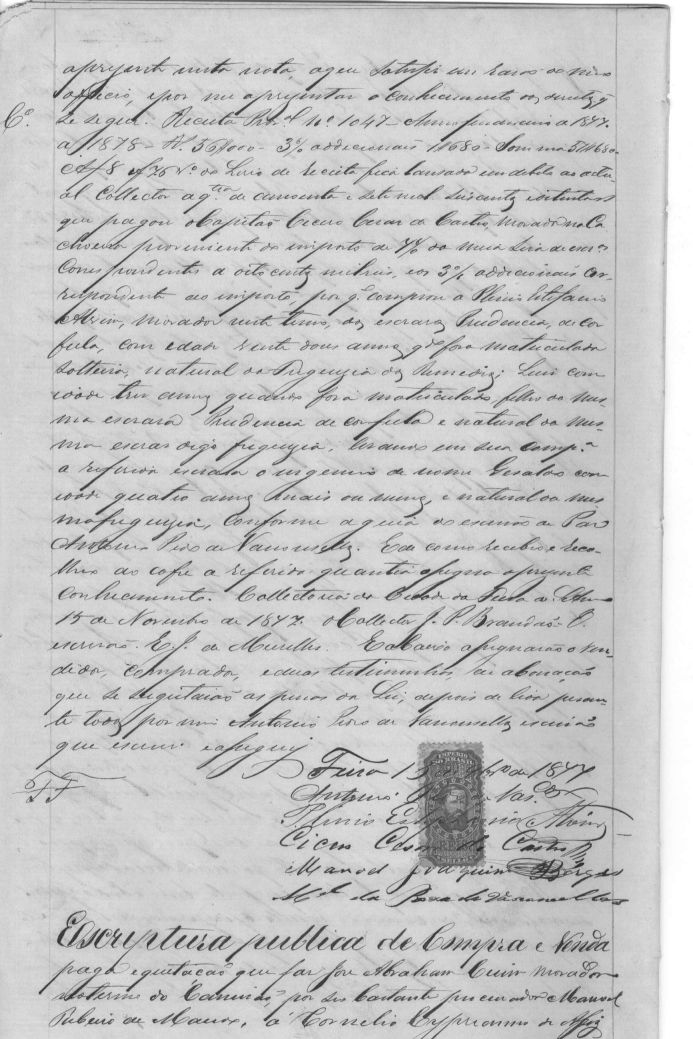 apresente nesta nota, a qual satisfiz em razão do meu
officio, e por me apresentar o conhecimento dos direitos q
Cº
se segue. Receita Nº 1047 Anno financeiro de 1877
a 1878 - Rs. 56$000 - 3% addicionaes 1$680 - Somma 57$680
A f 8 do Livro de receita fica lançada em debito ao actu-
al Collector a q.tia de cincoenta e sete mil seiscentos e oitenta rs
que pagou o Capitão Cicero Cesar de Castro, morador na Ca
choeira proveniente do imposto de 7% da meia Siza de escr.os
Correspondente a oito centos mil reis, e os 3% addicionaes cor-
respondente ao imposto, por q. comprou a Plinio Estefanio
Alvim, morador neste termo, os escravos Prudencia, de cor
fula, com edade vinte dous annos q.do fora matriculada
solteira, natural da freguezia dos Remedios; Luis com
idade tres annos quando fora matriculado, filho da mes-
ma escrava Prudencia de cor fula e natural da mes-
ma escrav digo freguezia, levando em sua comp.a
a referida escrava o ingenuo de nome com
idade quatro annos mais ou menos e natural da mes
ma freguezia, Conforme a guia do escrivão de Paz
Antonio Pedro de Vasconcellos. E de como recebeu e reco-
lheo ao cofre a referida quantia assigna o presente
Conhecimento. Collectoria da Cidade da Feira de
15 de Novembro de 1877. O Collector J. P. Brandão. O
escrivão. E. J. de Meirelles. E abaixo assignarão o ven-
dedor, comprador, e duas testimunhas de abonação
que se sugeitarão as penas da Lei, depois de lida peran-
te todos por mim Antonio Pedro de Vasconcellos escrivão
que escrevi e assignei
Feira 15 de 9br.º de 1877
Antonio de Vas.cos
Plinio Alvim
Cicero Cesar de Castro
Manoel Joaquim Borges
M.el da de Vasconcellos
IMPERIO
DO BRASIL
Escriptura publica de Compra e Venda
paga e quitação que faz José Abrahão Cuim morador
no termo do Camisão, por seu bastante procurador Manoel
Ribeiro de Macedo, á Cornelio Cypriano de Assis